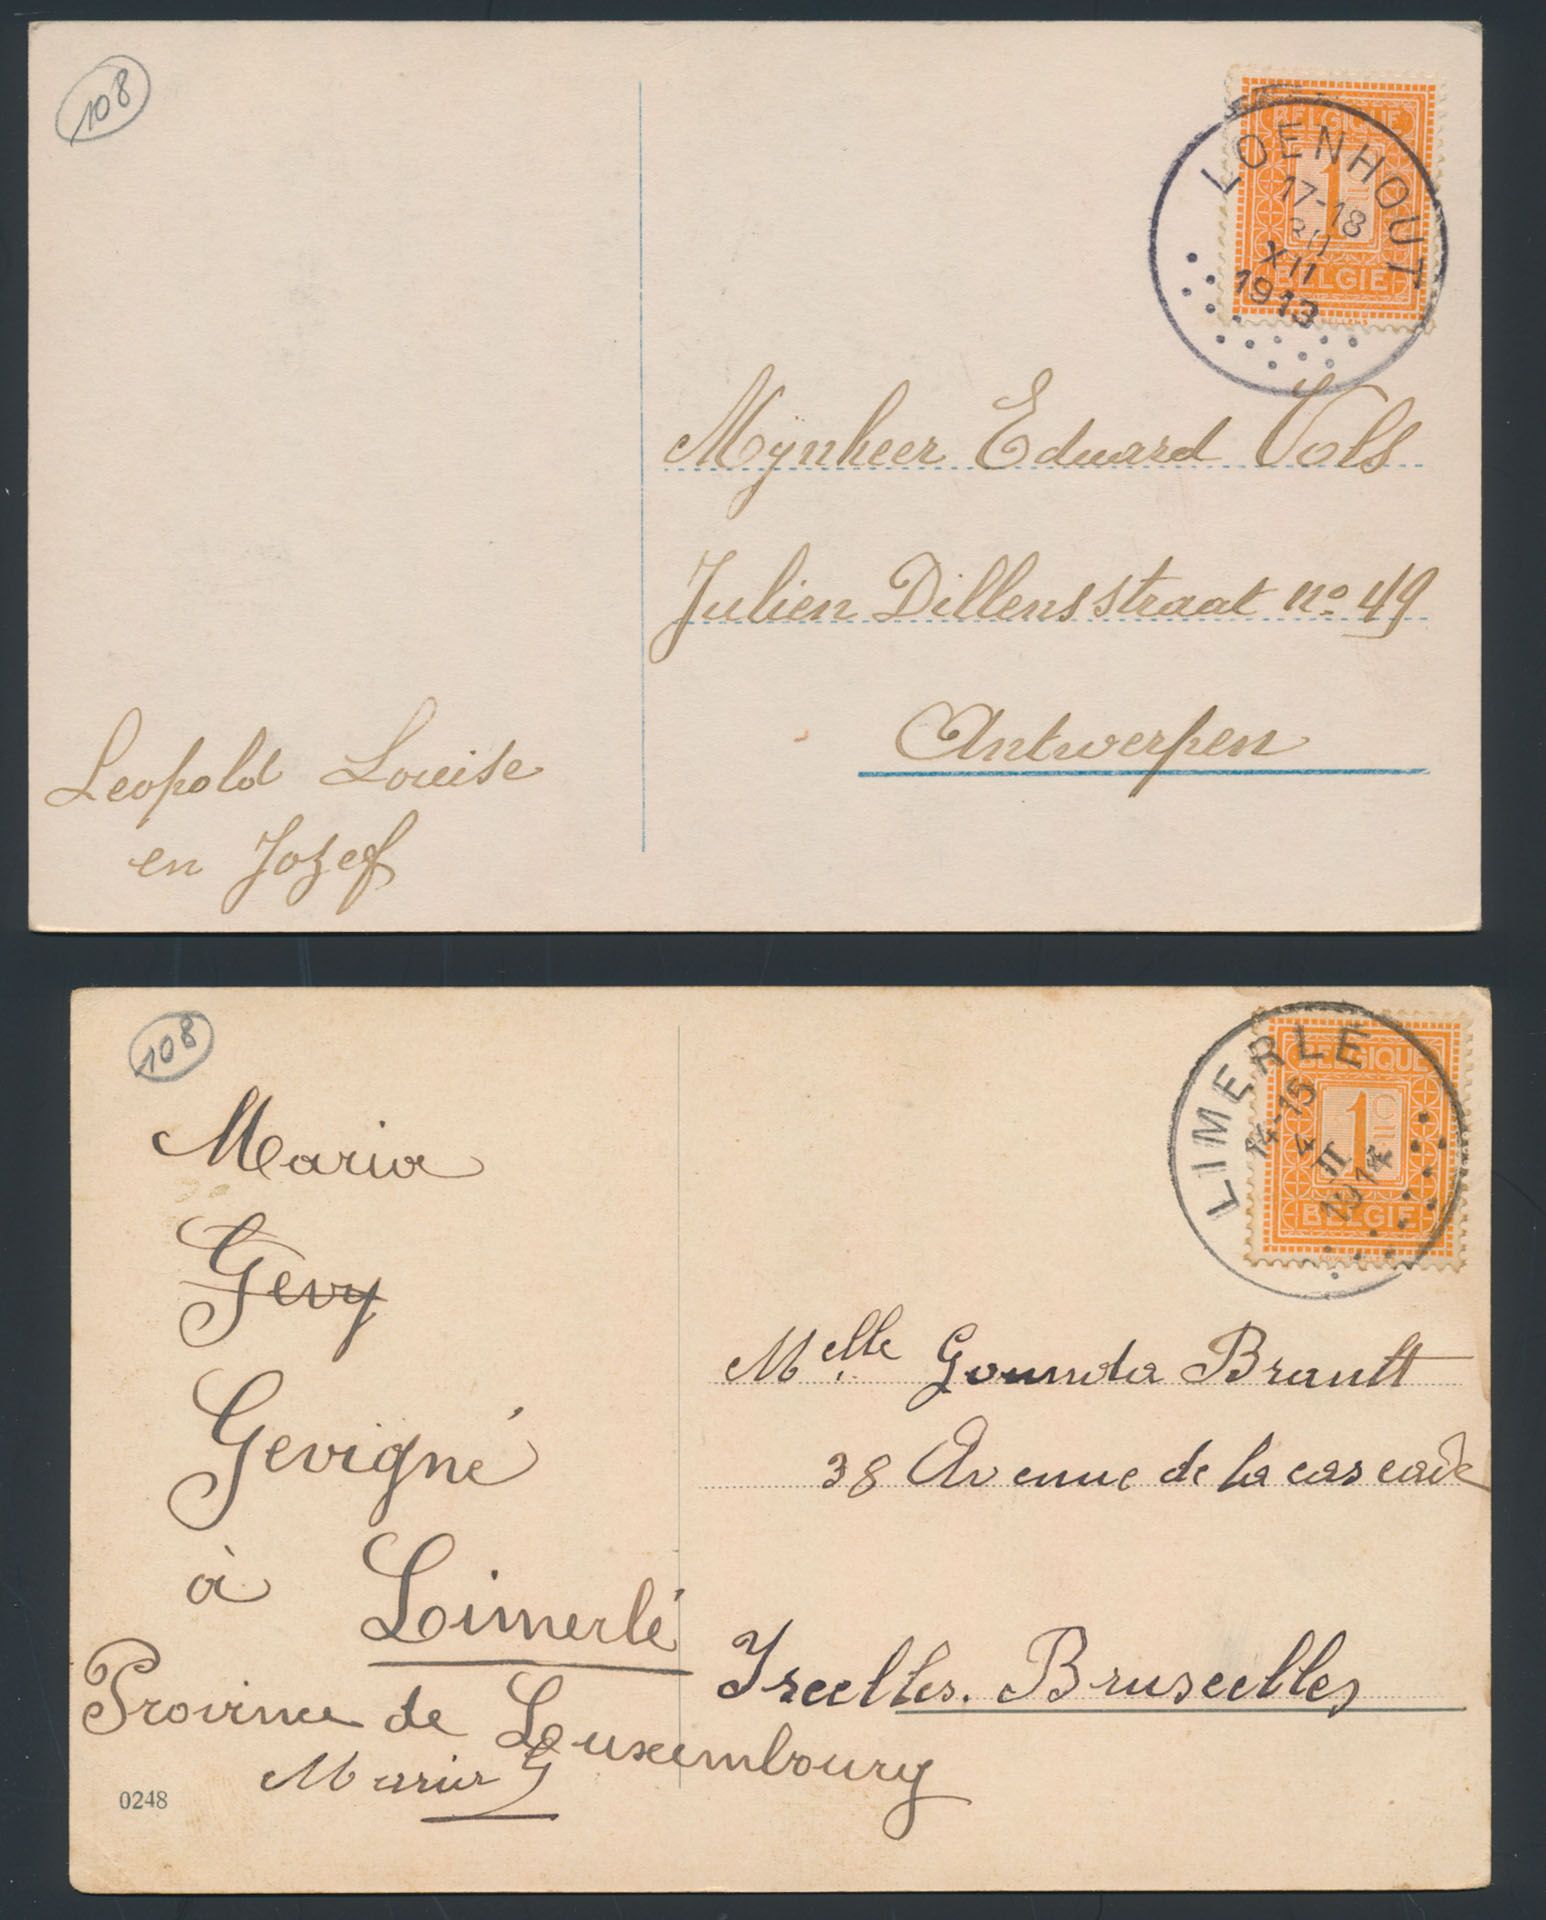 108
BELGIQUE
1
BELGIE
LOENHOUT
17-18
XII
1913
Mynheer Eduard Vols
Julien Dillensstraat no 49
Antwerpen
Leopold Louise
en Jozef
108
BELGIQUE
1
BELGIE
LIMERLE
14-15
4
II
1914
Maria
Gevy
Gevigné
à Limerlé
Province de Luxembourg
Maria G
0248
Melle Brantt
38 Avenue de la cascade
Ixelles. Bruxelles